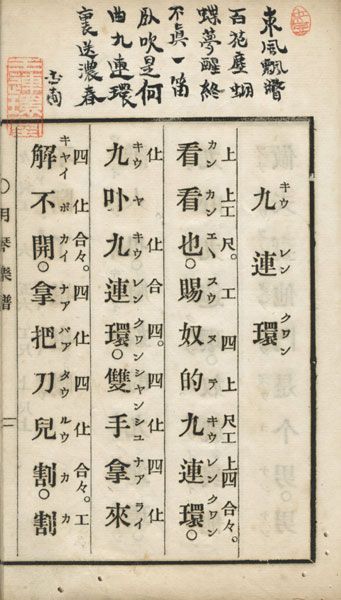 東風飄瞥
百花塵蝴
蝶夢醒終
不眞一笛
臥吹是何
曲九連環
裏送濃春
九連環
キウ レン クワン
上 上工 尺。 工 四 上 尺工 上四 合々。
看看也。賜奴的九連環。
カン カン エヽ スウ ヌ テ キウ レン クワン
仩 仩 合 四。 四 仩 四 仩
九 九連環。雙手拿來
キウ ヤ キウ レン クワン シヤン シユ ナア ライ
四 仩 合々。 四 仩 四 仩 合々。 工
解不開。拿把刀兒割。割
キヤイ ポ カイ ナア パア タウ ルウ カ カ
〇月琴樂譜